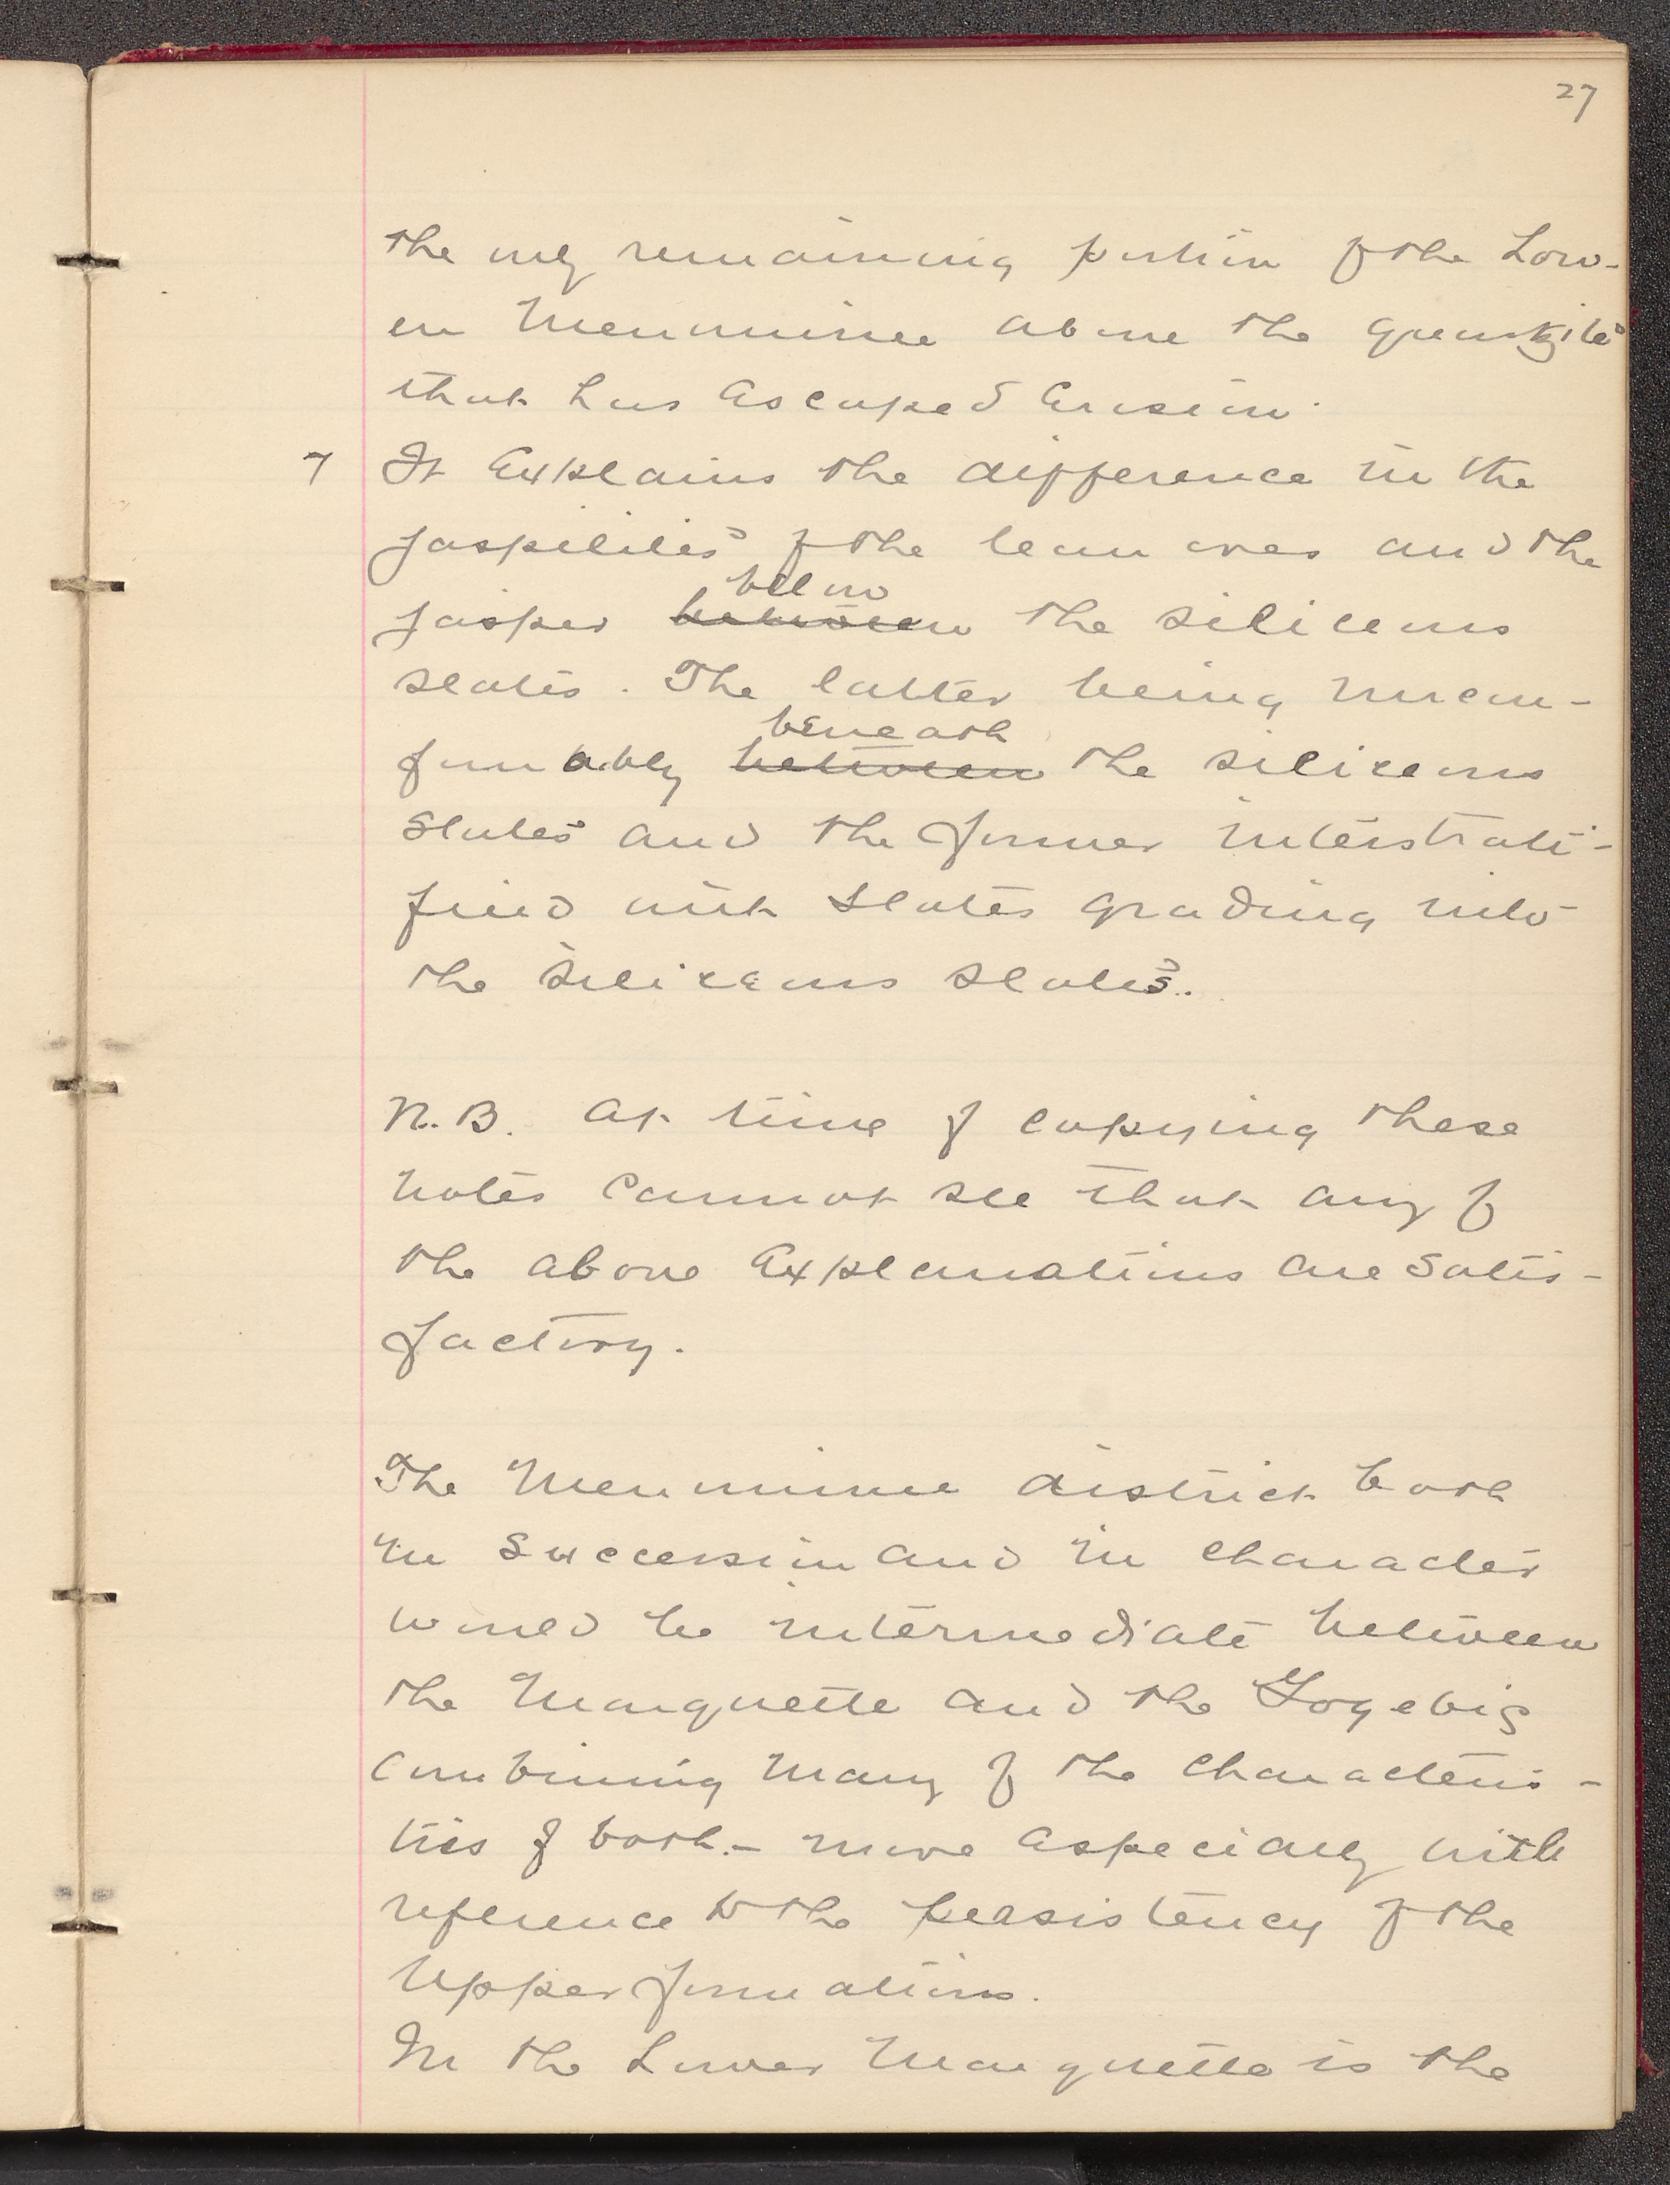 27
the only remaining portion of the Low-
er Menominee above the quartzite
that has escaped erosion.
7 It explains the difference in the
jaspilites of the lean ores and the
below
jasper between the siliceous
slates. The latter being uncon-
beneath
formably between the siliceous
slates and the former interstrati-
fied with slates grading into
the siliceous slates.
N.B. At time of copying these
notes cannot see that any of
the above explanations are satis-
factory.
The Menominee district both
in succession and in character
would be intermediate between
the Marquette and the Gogebig
combining many of the characteris-
tics of both - more especially with
reference to the persistency of the
upper formations.
In the Lower Marquette is the